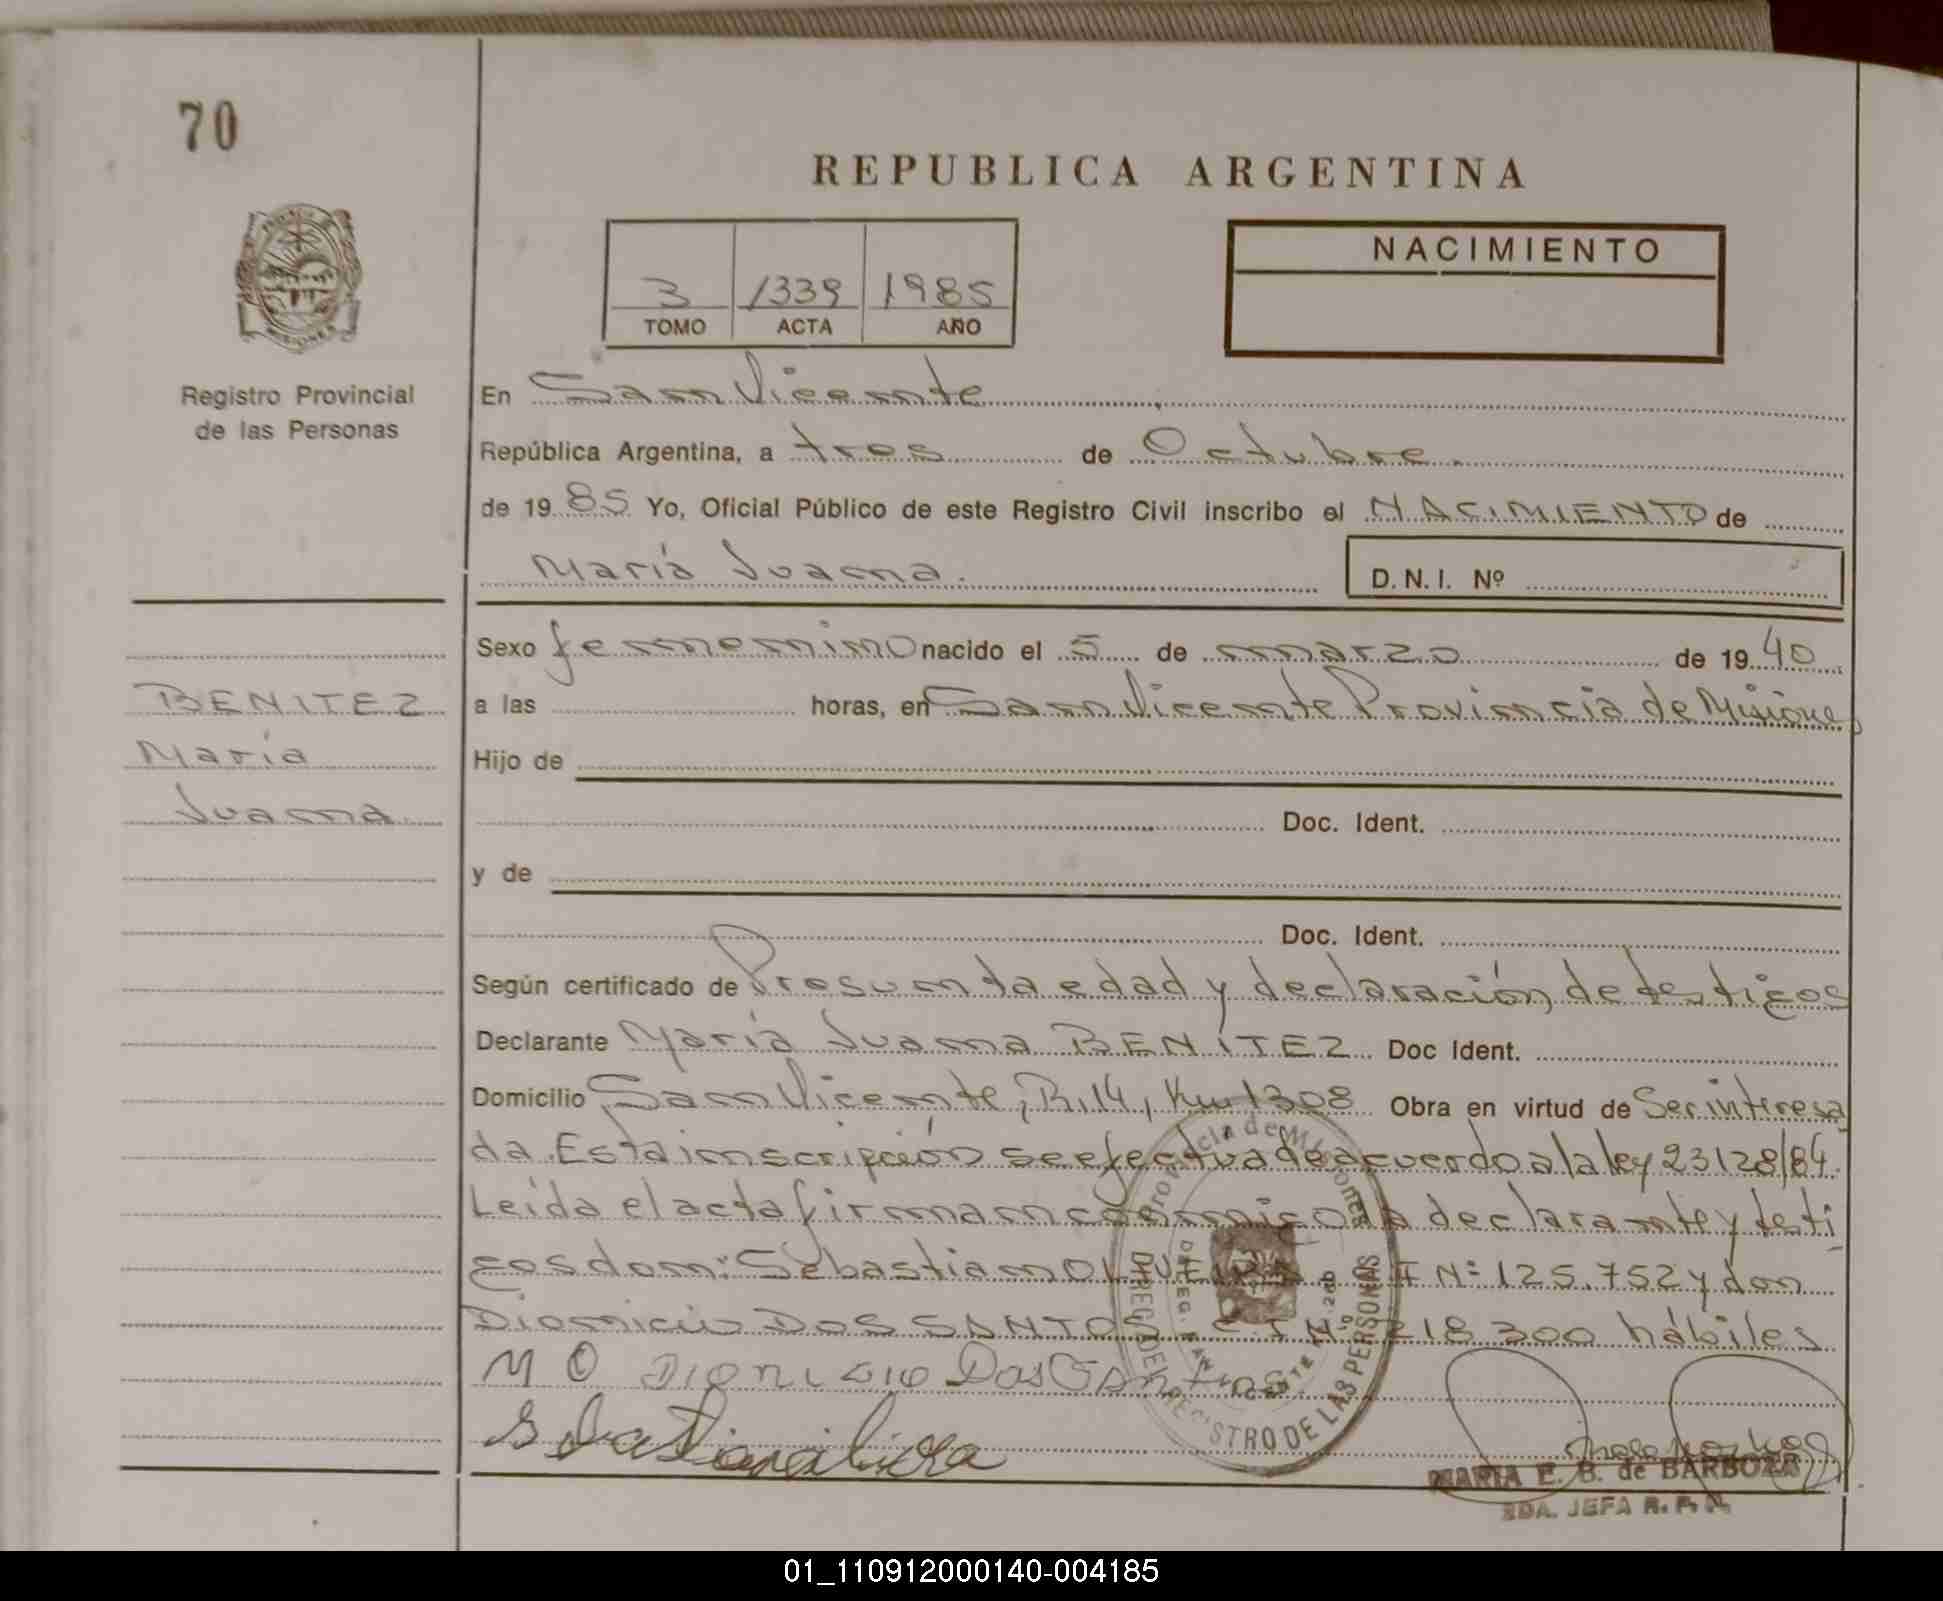 70
REPUBLICA ARGENTINA
MISIONES
Registro Provincial
de las Personas
3 1339 1985
TOMO ACTA AÑO
NACIMIENTO
En San Vicente
República Argentina, a tres de Octubre
de 19 85 Yo, Oficial Público de este Registro Civil inscribo el NACIMIENTO de
María Juana.
D.N.I. Nº
Sexo femenino nacido el 5 de marzo de 19 40
a las horas, en San Vicente Provincia de Misiones
Hijo de
Doc. Ident.
y de
Doc. Ident.
BENITEZ
María
Juana.
Según certificado de Presunta edad y declaración de testigos
Declarante María Juana BENÍTEZ Doc Ident.
Domicilio San Vicente, R.14, Km 1308 Obra en virtud de Ser interesa
da. Esta inscripción se efectua de acuerdo a la ley 23128/84.
Leída el acta firman conmigo la declarante y testi
gos don: Sebastian OLIVEIRA C I Nº 125.752 y don
Dionicio DOS SANTOS C.I Nº 218 300 hábiles
M O DIONICIO Dos Santos
Provincia de Misiones
DIREC. DEL REGISTRO DE LAS PERSONAS
MARIA E. B. de BARBOZA
2DA. JEFA R. P. P.
01_110912000140-004185